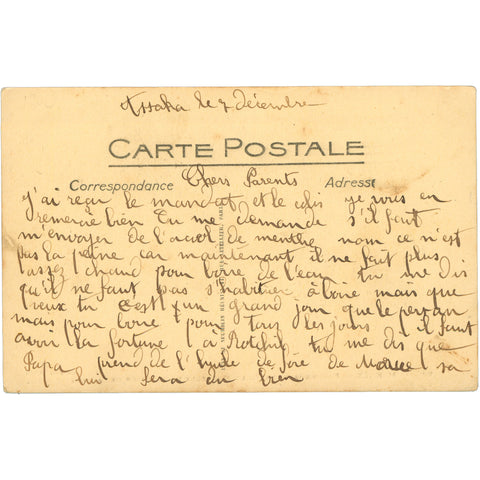 Assaka le 7 décembre
CARTE POSTALE
Correspondance Chers Parents Adresse
j'ai reçu le mandat et le colis je vous en
remercie bien Tu me demande s'il faut
m'envoyer de l'alcool de menthe nom ce n'est
pas la peine car maintenant il ne fait plus
assez chaud pour boire de l'eau tu me dis
qu'il ne faut pas s'habituer à boire mais que
veux tu c'est un grand jour que le
mais pour boire pour tous les jours il faut
avoir la fortune a Rotchild tu me dis que
Papa prend de l'huile de foie de Morue sa
lui fera du bien